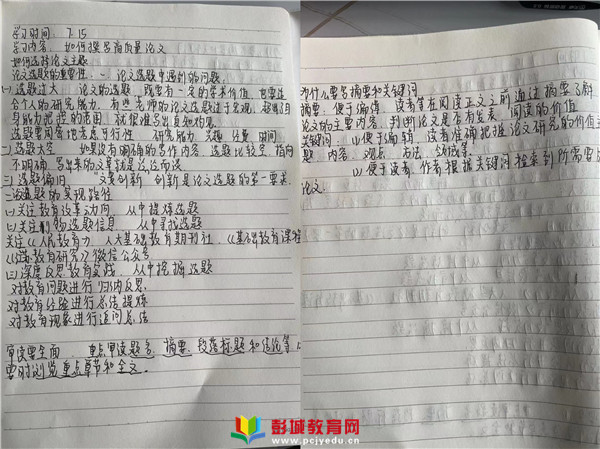 学习时间：7.15
学习内容：如何撰写高质量论文
如何选择论文主题
论文选题的重要性 一 论文选题中遇到的问题.
(一)选题过大 论文的选题，既要有一定的学术价值，也要适
合个人的研究能力，有些老师的论文选题过于宏观，超出自
身能力把控的范围，就很难写出真知灼见。
选题要周密地考虑可行性，研究能力 兴趣 经费，时间
(二)选题太空 如果没有明确的写作内容，选题比较空，指向
不明确，写出来的文章就是泛泛而谈
(三)选题偏旧 "文贵创新"创新是论文选题的第一要求.
二论文选题的实现路径
(一)关注教育改革动向，从中提炼选题
(二)关注报刊选题信息，从中寻找选题
关注《人民教育》人大基础教育期刊社，《基础教育课程》
教育研究》微信公众号
(三)深度反思教育实践，从中挖掘选题
对教育问题进行归纳反思.
对教育经验进行总结提炼
对教育现象进行追问总结
审读要全面 重点审读题名、摘要、段落标题和结论等，
要时浏览重点章节和全文。
为什么要写摘要和关键词
摘要：便于编辑、读者等在阅读正文之前通过摘要了解
论文的主要内容，判断论文是否有发表、阅读的价值
关键词：(1)便于编辑、读者准确把握论文研究的价值主
题、内容、观点、方法、领域等.
(2)便于读者、作者根据关键词检索到所需要的
论文.
彭城教育网
www.pcjyedu.cn